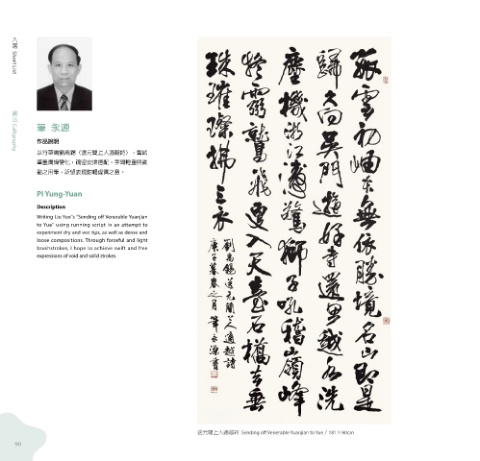 入選 Short List
書法 Calligraphy
筆 永源
作品說明
PI Yung-Yuan
Description
Writing Liu Yuxi's "Sending off Venerable Yuanjian
to Yue" using running script is an attempt to
experiment dry and wet tips, as well as dense and
loose compositions. Through forceful and light
brushstrokes, I hope to achieve swift and free
expressions of void and solid strokes.
孤雲出岫本無依勝境名山即是
歸久向吳門遊好寺還思越水洗
塵機浙江濤驚獅子吼稽嶺峰
疑靈鷲飛更入天臺石橋去垂
珠璀璨拂三衣
劉禹錫送元簡上人適越詩
庚子暮春之月筆永源書
送元簡上人適越詩 Sending off Venerable Yuanjian to Yue / 181×90cm
90